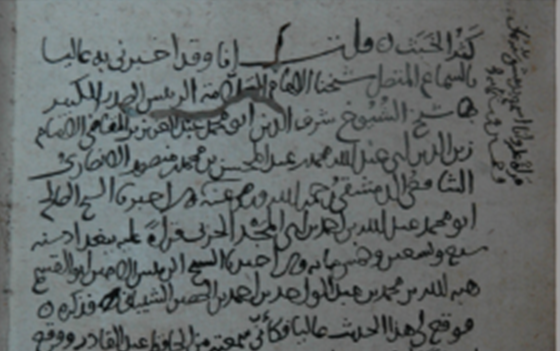 قلت انا وقد اخبرني به عاليا
بالسماع المتصل شيخنا الامام العلامة الرئيس الصدر الكبير
شيخ الشيوخ شرف الدين ابو محمد عبد العزيز بن القاضي الامام
زين الدين ابي عبد الله محمد بن عبد المحسن بن محمد بن منصور الانصاري
الشافعي الدمشقي رحمه الله ورضي عنه قال اخبرنا الشيخ الصالح
ابو محمد عبد الله بن احمد بن ابي المجد الحربي قراءة عليه ببغداد سنة
سبع وتسعين وخمس مايه قال اخبرنا الشيخ الرئيس الامين ابو القسم
هبه الله بن محمد بن عبد الواحد بن احمد بن الحصين الشيباني فذكره
فوقع لي هذا الحديث عاليا فكأني سمعته من الحافظ عبد القادر ووقع